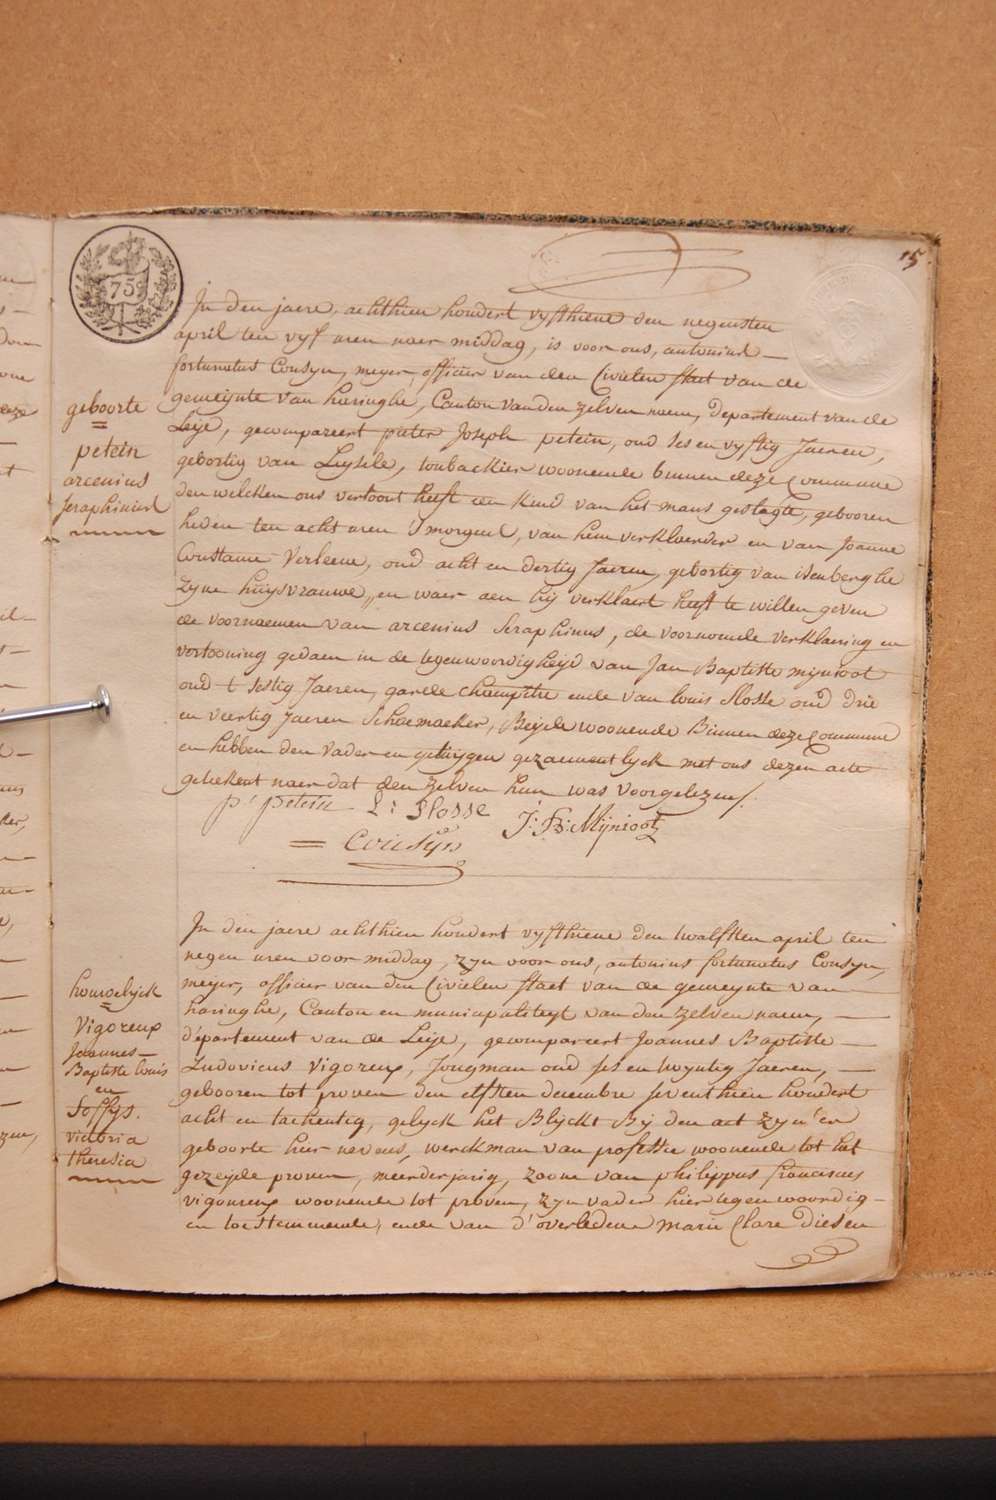 15
75
In den jaere, achthien hondert vyfthiene den negensten
april ten vyf uren naer middag, is voor ons, antonius —
fortunatus Cousyn, meyer, officier van den Civielen staet van de
gemeynte van haringhe, Canton van den zelven naem, departement van de
Leije, gecompareert pieter Joseph petein, oud ses en vyftig Jaeren,
gebortig van Leysele, toubackier woonende binnen deze Commune
den welcken ons vertoont heeft een kind van het mans geslagte, gebooren
heden ten acht uren s'morgens, van hem verklaerder en van Joanne
Constance Verleene, oud acht en dertig Jaeren, gebortig van isenberghe
zyne huysvrauwe, en waer aen hij verklaert heeft te willen geven
de voornaemen van arcenius Seraphinus, de voornoemde verklaering en
vertooning gedaen in de tegenwoordigheijd van Jan Baptiste mijnioot
oud t' sestig Jaeren, garde champetre ende van louis Slosse oud drie
en veertig jaeren Schoemaeker, Beijde woonende Binnen deze Commune
en hebben den vader en getuygen gezaementlyck met ons dezen acte
geteekent naer dat den zelven hun was voorgelezen /.
geboorte
=
petein
arcenius
Seraphinus
p: petein L: Slosse J: Bt: Mijnioot
= Cousijn
In den jaere achthien hondert vyfthiene den twalfsten april ten
negen uren voor middag, zyn voor ons, antonius fortunatus Cousyn,
meyer, officier van den Civielen staet van de gemeynte van
haringhe, Canton en municipaliteyt van den zelven naem, —
département van de Leije, gecompareert Joannes Baptiste —
Ludovicus Vigoreux, Jongman oud ses en twyntig Jaeren, —
gebooren tot proven den elfsten decembre seventhien hondert
acht en tachentig, gelyck het Blyckt Bij den act zyn'er
geboorte hier nevens, werckman van professie woonende tot het
gezeijde proven, meerderjarig, zoone van philippus franciscus
vigoureux woonende tot proven, zyn vader hier tegenwoordig —
en toestemmende, ende van d'overledene marie Clare Diesen
houwelyck
=
Vigoreux
Joannes —
Baptiste louis
en
Soffijs.
victoria
theresia